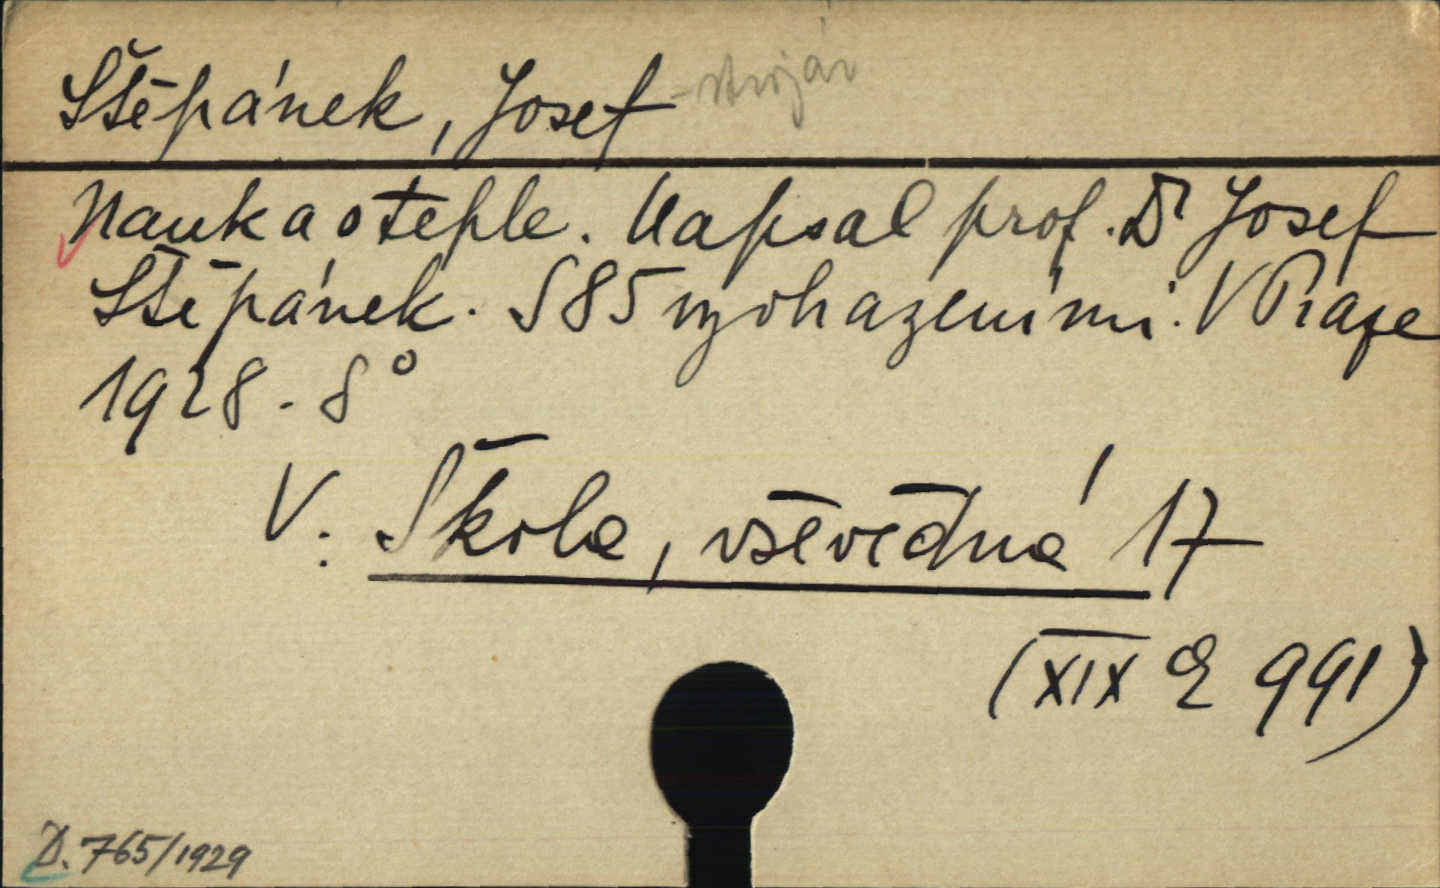 Štěpánek, Josef - strojár
Nauka o teple. Napsal prof. Dr Josef
Štěpánek. S 85 vyobrazeními. V Praze
1928. 8°
V: Škola, vševědná 17
(XIX E 991)
D. 765/1929